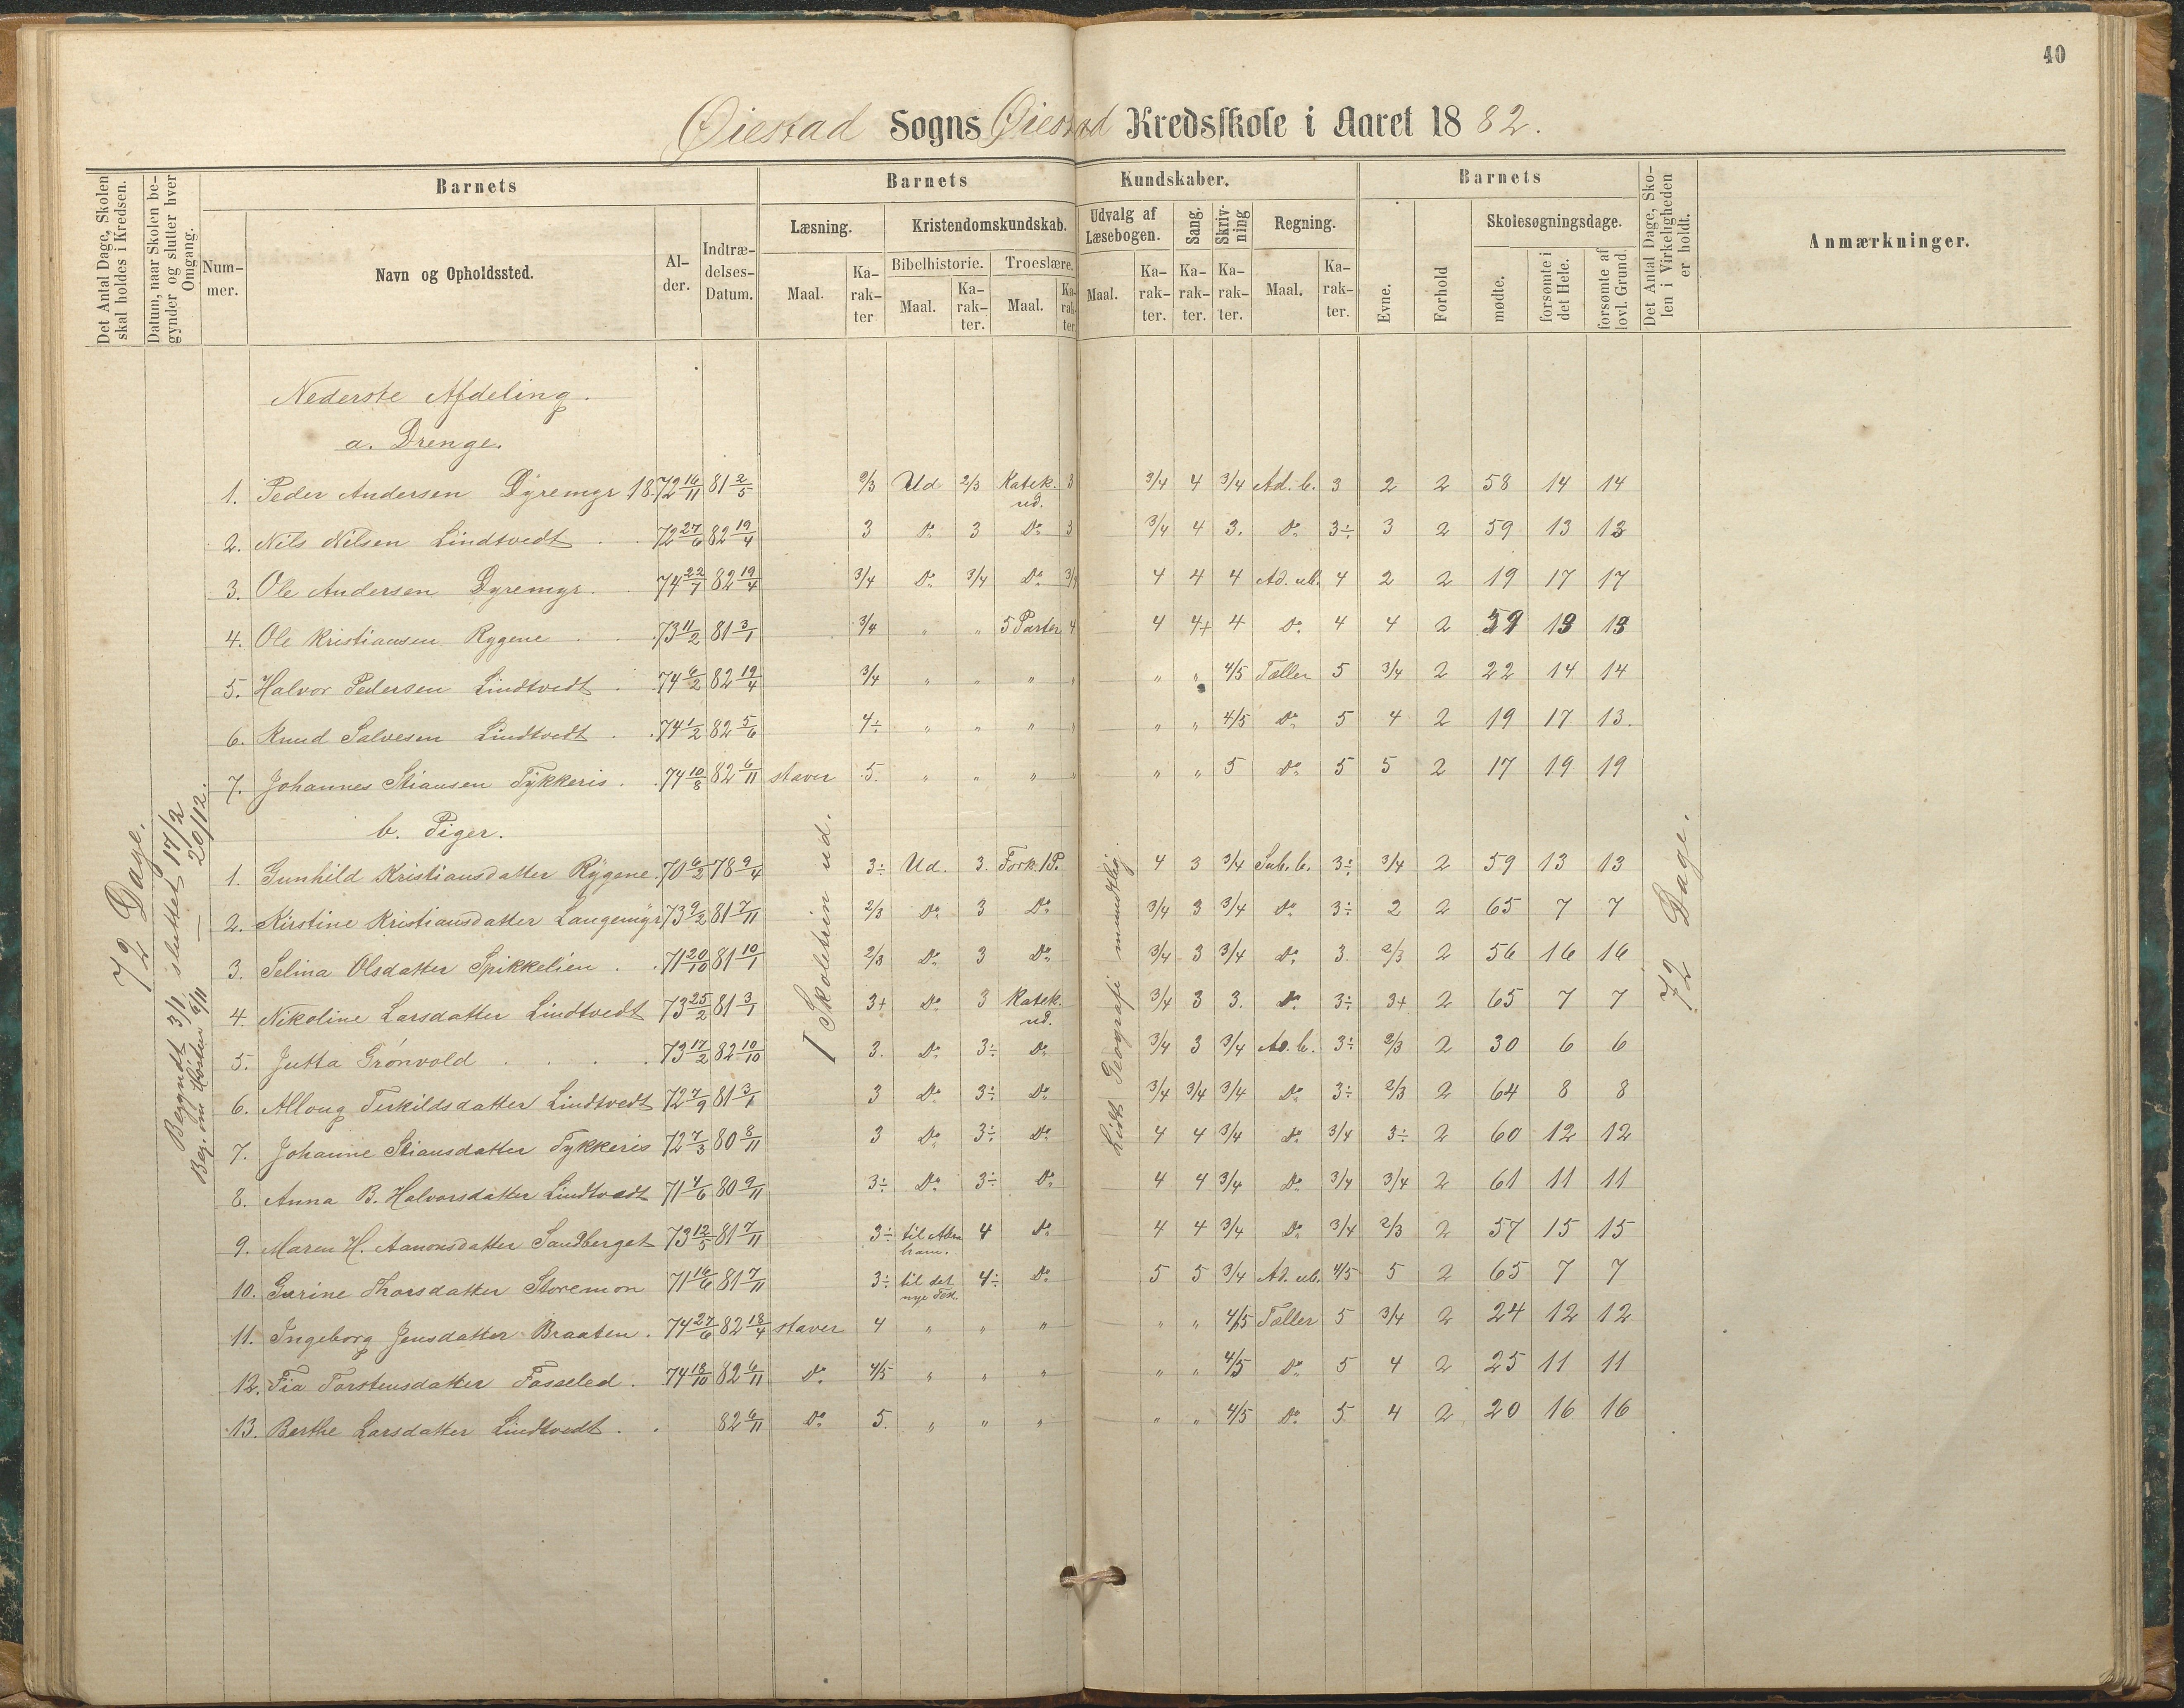 40
Øiestad Sogns Øiestad Kredsskole i Aaret 1882.
Det Antal Dage, Skolen skal holdes i Kredsen.
Datum, naar Skolen begynder og slutter hver Omgang.
Barnets
Nummer.
Navn og Opholdssted.
Alder.
Indtrædelses-Datum.
Barnets Kundskaber.
Læsning.
Maal. Karakter
Kristendomskundskab.
Bibelhistorie. Troeslære.
Maal. Karakter. Maal. Karakter.
Udvalg af Læsebogen.
Maal. Karakter.
Sang. Karakter.
Skrivning Karakter.
Regning.
Maal. Karakter.
Barnets
Evne. Forhold
Skolesøgningsdage.
mødte. forsømte i det Hele. forsømte af lovl. Grund.
Det Antal Dage, Skolen i Virkeligheden er holdt.
Anmærkninger.
72 Dage.
Begyndt 3/1 sluttet 17/2
Beg. om Høsten 6/11 — 20/12.
I Skoletien ud.
Lidt Geografi mundtlig.
72 Dage.
Nederste Afdeling.
a. Drenge.
1. Peder Andersen Dyremyr 18.72 16/11 81 2/5 2/3 Ud 2/3 Katek. ud. 3 3/4 4 3/4 Ad. b. 3 2 2 58 14 14
2. Nils Nilsen Lindtvedt . . 72 27/6 82 19/4 3 Do 3 Do 3 3/4 4 3. Do 3÷ 3 2 59 13 13
3. Ole Andersen Dyremyr. . 74 22/7 82 19/4 3/4 Do 3/4 Do 3/4 4 4 4 Ad. ub. 4 2 2 19 17 17
4. Ole Kristiansen Rygene . . 73 11/2 81 3/1 3/4 " " 5 Parter 4 4 4+ 4 Do 4 4 2 59 13 13
5. Halvor Pedersen Lindtvedt . 74 6/2 82 19/4 3/4 " " " " " " 4/5 Tæller 5 3/4 2 22 14 14
6. Knud Salvesen Lindtvedt . . 74 1/2 82 5/6 4÷ " " " " " " 4/5 Do 5 4 2 19 17 13.
7. Johannes Stiansen Tykkeris . . 74 10/8 82 6/11 staver 5. " " " " " " 5 Do 5 5 2 17 19 19
b. Piger.
1. Gunhild Kristiansdatter Rygene. 70 6/2 78 9/4 3÷ Ud. 3. Fork. 1 P. 4 3 3/4 Sub. b. 3÷ 3/4 2 59 13 13
2. Kirstine Kristiansdatter Langemyr 73 9/2 81 7/11 2/3 Do 3 Do 3/4 3 3/4 Do 3÷ 2 2 65 7 7
3. Selina Olsdatter Spikkelien . . 71 20/10 81 10/1 2/3 Do 3 Do 3/4 3 3/4 Do 3. 2/3 2 56 16 16
4. Nikoline Larsdatter Lindtvedt 73 25/2 81 3/1 3+ Do 3 Katek. ud. 3/4 3 3. Do 3÷ 3+ 2 65 7 7
5. Jutta Grönvold . . . . 73 17/2 82 10/10 3. Do 3÷ Do 3/4 3 3/4 Ad. b. 3÷ 2/3 2 30 6 6
6. Alloug Terkildsdatter Lindtvedt 72 7/9 81 3/1 3 Do 3÷ Do 3/4 3/4 3/4 Do 3÷ 2/3 2 64 8 8
7. Johanne Stiansdatter Tykkeris 72 7/3 80 8/11 3 Do 3÷ Do 4 4 3/4 Do 3/4 3÷ 2 60 12 12
8. Anna B. Halvorsdatter Lindtvedt 71 4/6 80 9/11 3÷ Do 3÷ Do 4 4 3/4 Do 3/4 3/4 2 61 11 11
9. Maren H. Aanonsdatter Sandberget 73 12/5 81 7/11 3÷ til Abraham. 4 Do 4 4 3/4 Do 3/4 2/3 2 57 15 15
10. Gurine Thorsdatter Storemon 71 16/6 81 7/11 3÷ til det nye Test. 4÷ Do 5 5 3/4 Ad. ub. 4/5 5 2 65 7 7
11. Ingeborg Jensdatter Braaten . 74 27/6 82 18/4 staver 4 " " " " " 4/5 Tæller 5 3/4 2 24 12 12
12. Fia Torstensdatter Fosseled . 74 18/10 82 6/11 Do 4/5 " " " " " 4/5 Do 5 4 2 25 11 11
13. Berthe Larsdatter Lindtvedt . . 82 6/11 Do 5. " " " " " 4/5 Do 5. 4 2 20 16 16